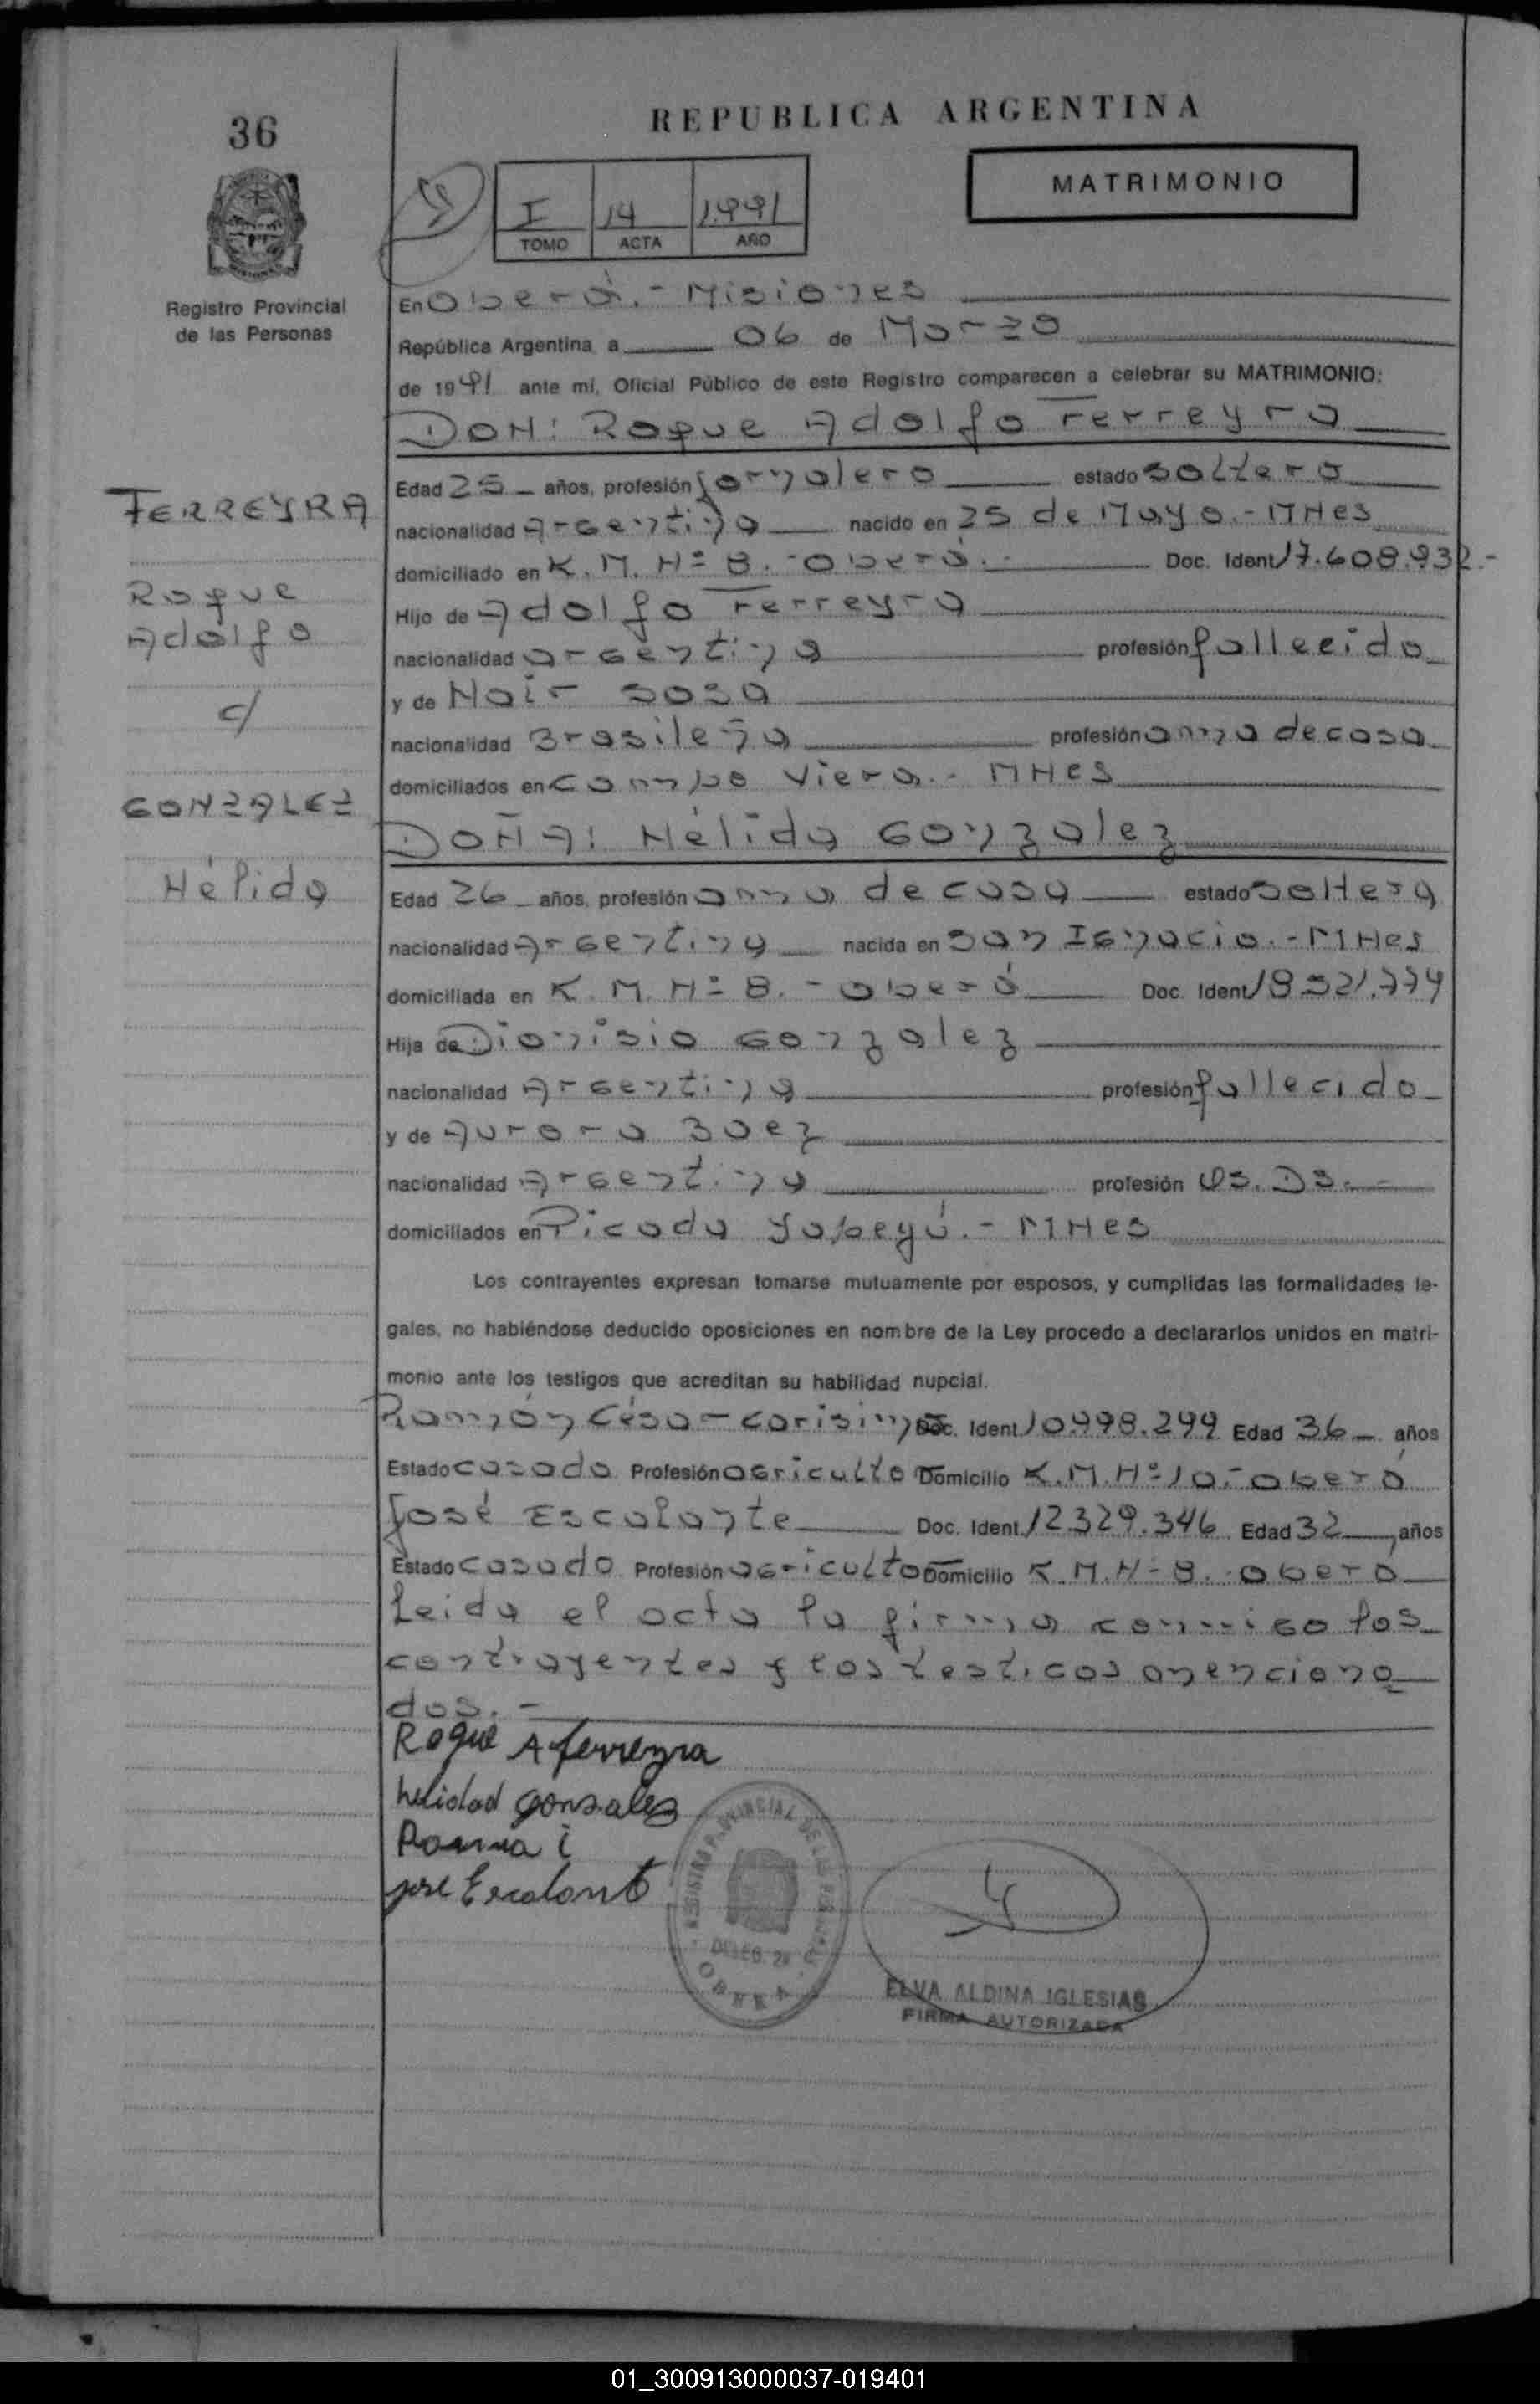 REPUBLICA ARGENTINA
36
MATRIMONIO
I 14 1.991
TOMO ACTA AÑO
Registro Provincial
de las Personas
En Oberá.- Misiones
República Argentina a 06 de Marzo
de 1991 ante mí, Oficial Público de este Registro comparecen a celebrar su MATRIMONIO:
DON: Roque Adolfo Ferreyra
FERREYRA
Roque
Adolfo
c/
GONZALEZ
Hélida
Edad 25 años, profesión jornalero estado soltero
nacionalidad Argentina nacido en 25 de Mayo.- MNes
domiciliado en K.M. Nº 8.- Oberá.- Doc. Ident 17.608.932.-
Hijo de Adolfo Ferreyra
nacionalidad argentina profesión fallecido
y de Nair Sosa
nacionalidad Brasileña profesión ama de casa
domiciliados en campo Viera.- MNes
DOÑA: Hélida Gonzalez
Edad 26 años, profesión ama de casa estado soltera
nacionalidad Argentina nacida en San Ignacio.- MNes
domiciliada en K.M. Nº 8.- oberá Doc. Ident
Hija de Dionisio Gonzalez
nacionalidad Argentina profesión fallecido
y de Aurora Baez
nacionalidad Argentina profesión
domiciliados en Picada Yapeyú.- MNes
Los contrayentes expresan tomarse mutuamente por esposos, y cumplidas las formalidades le-
gales, no habiéndose deducido oposiciones en nombre de la Ley procedo a declararlos unidos en matri-
monio ante los testigos que acreditan su habilidad nupcial.
Ramón César Doc. Ident 10.998.299 Edad 36 años
Estado casado Profesión agricultor Domicilio K.M. Nº 10.- oberá
José Escalante Doc. Ident 12.329.346 Edad 32 años
Estado casado Profesión agricultor Domicilio K.M. N- 8.- oberá
Leida el acta la firma conmigo los
contrayentes y los testigos menciona
dos.-
Roque A ferreyra
helidad gonsales
jose Escalant
REGISTRO PROVINCIAL DE LAS PERSONAS
DELEG. 2
OBERA
ELVA ALDINA IGLESIAS
FIRMA AUTORIZADA
01_300913000037-019401